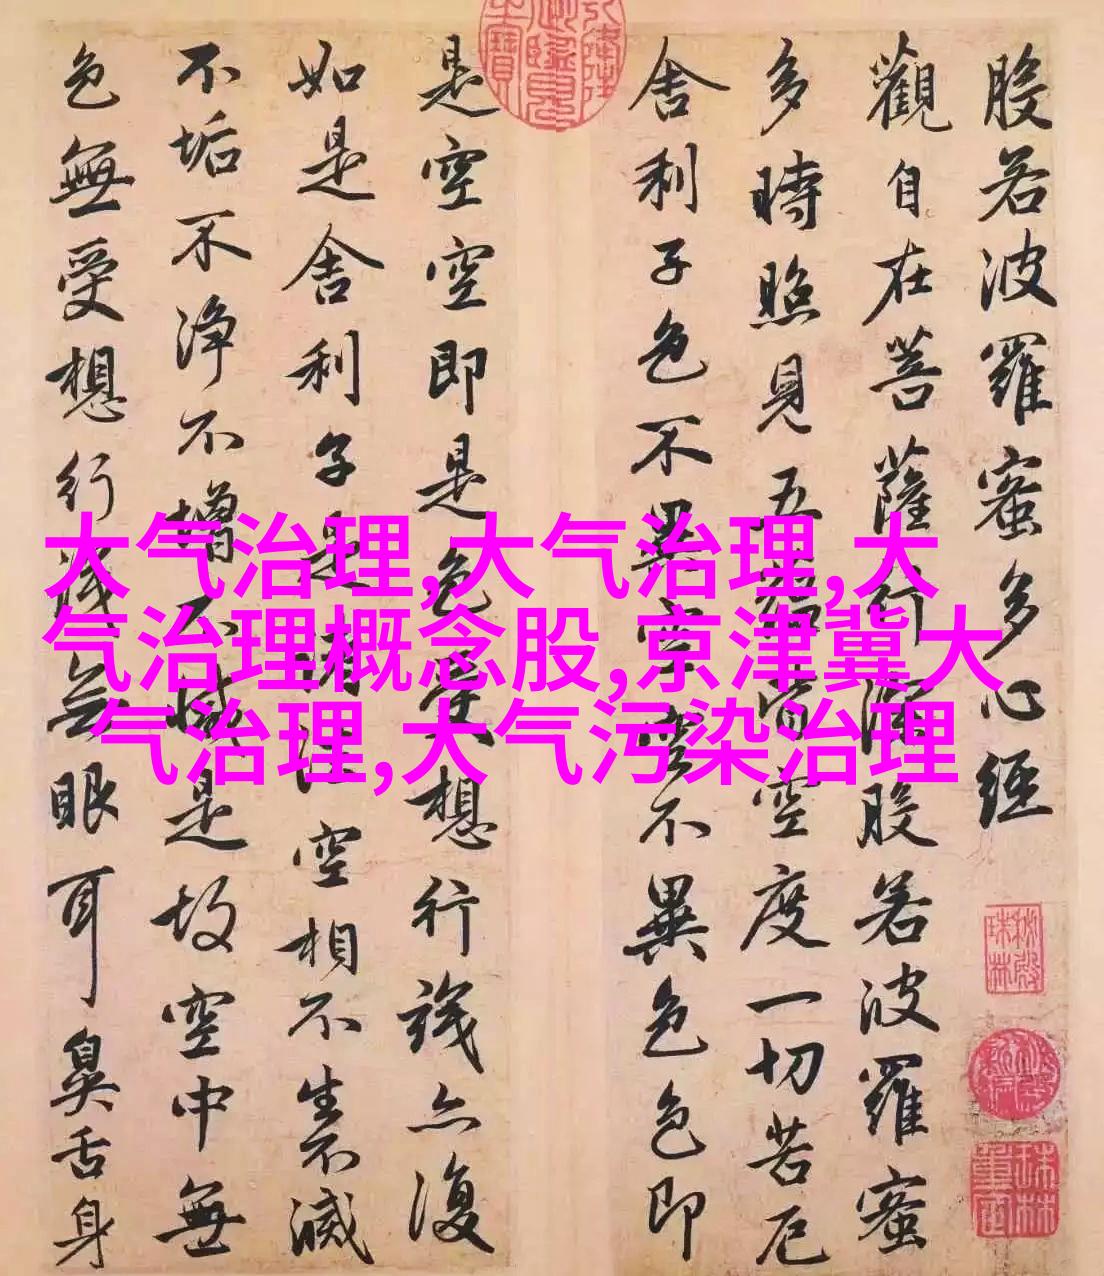 般若波羅蜜多心經
觀自在菩薩行深般若波羅蜜
多時照見五蘊皆空度一切苦厄
舍利子色不異空空不異色色即
是空空即是色受想行識亦復
如是舍利子是諸法空相不生不滅
不垢不淨不增不減是故空中無
色無受想行識無眼耳鼻舌身
大气治理,大气治理,大
气治理概念股,京津冀大
气治理,大气污染治理